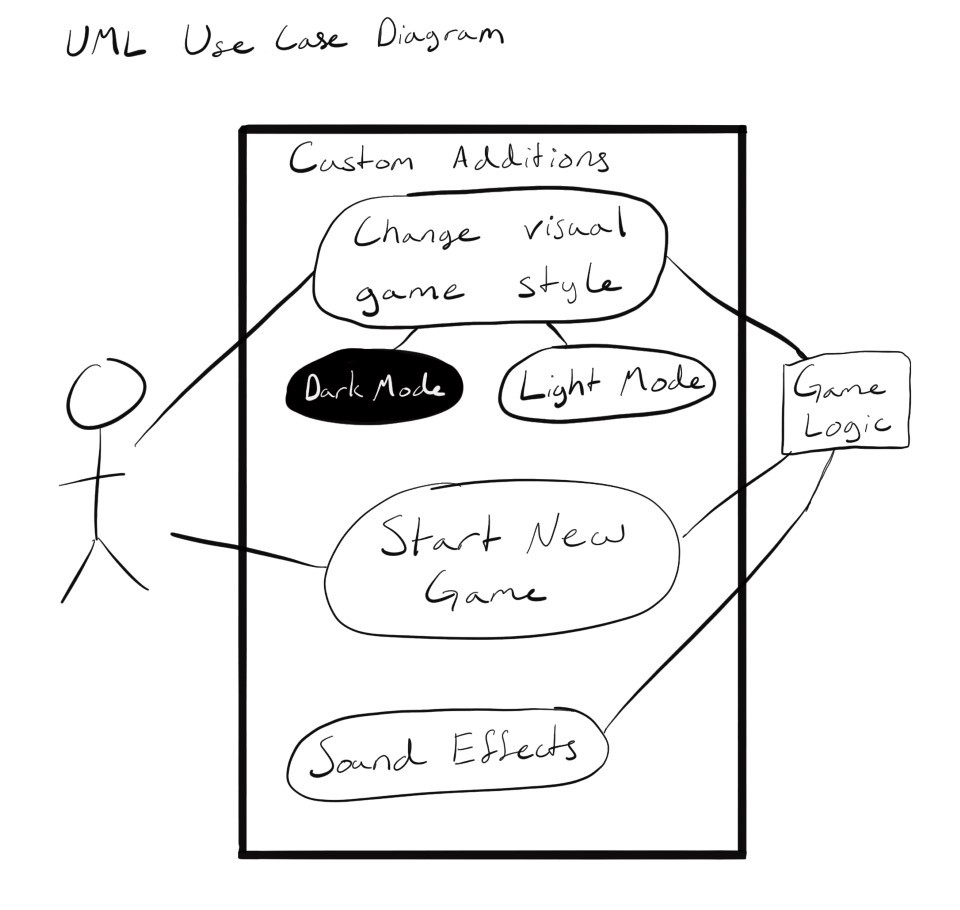 UML Use Case Diagram
Custom Additions
Change visual
game style
Dark Mode
Light Mode
Game
Logic
Start New
Game
Sound Effects